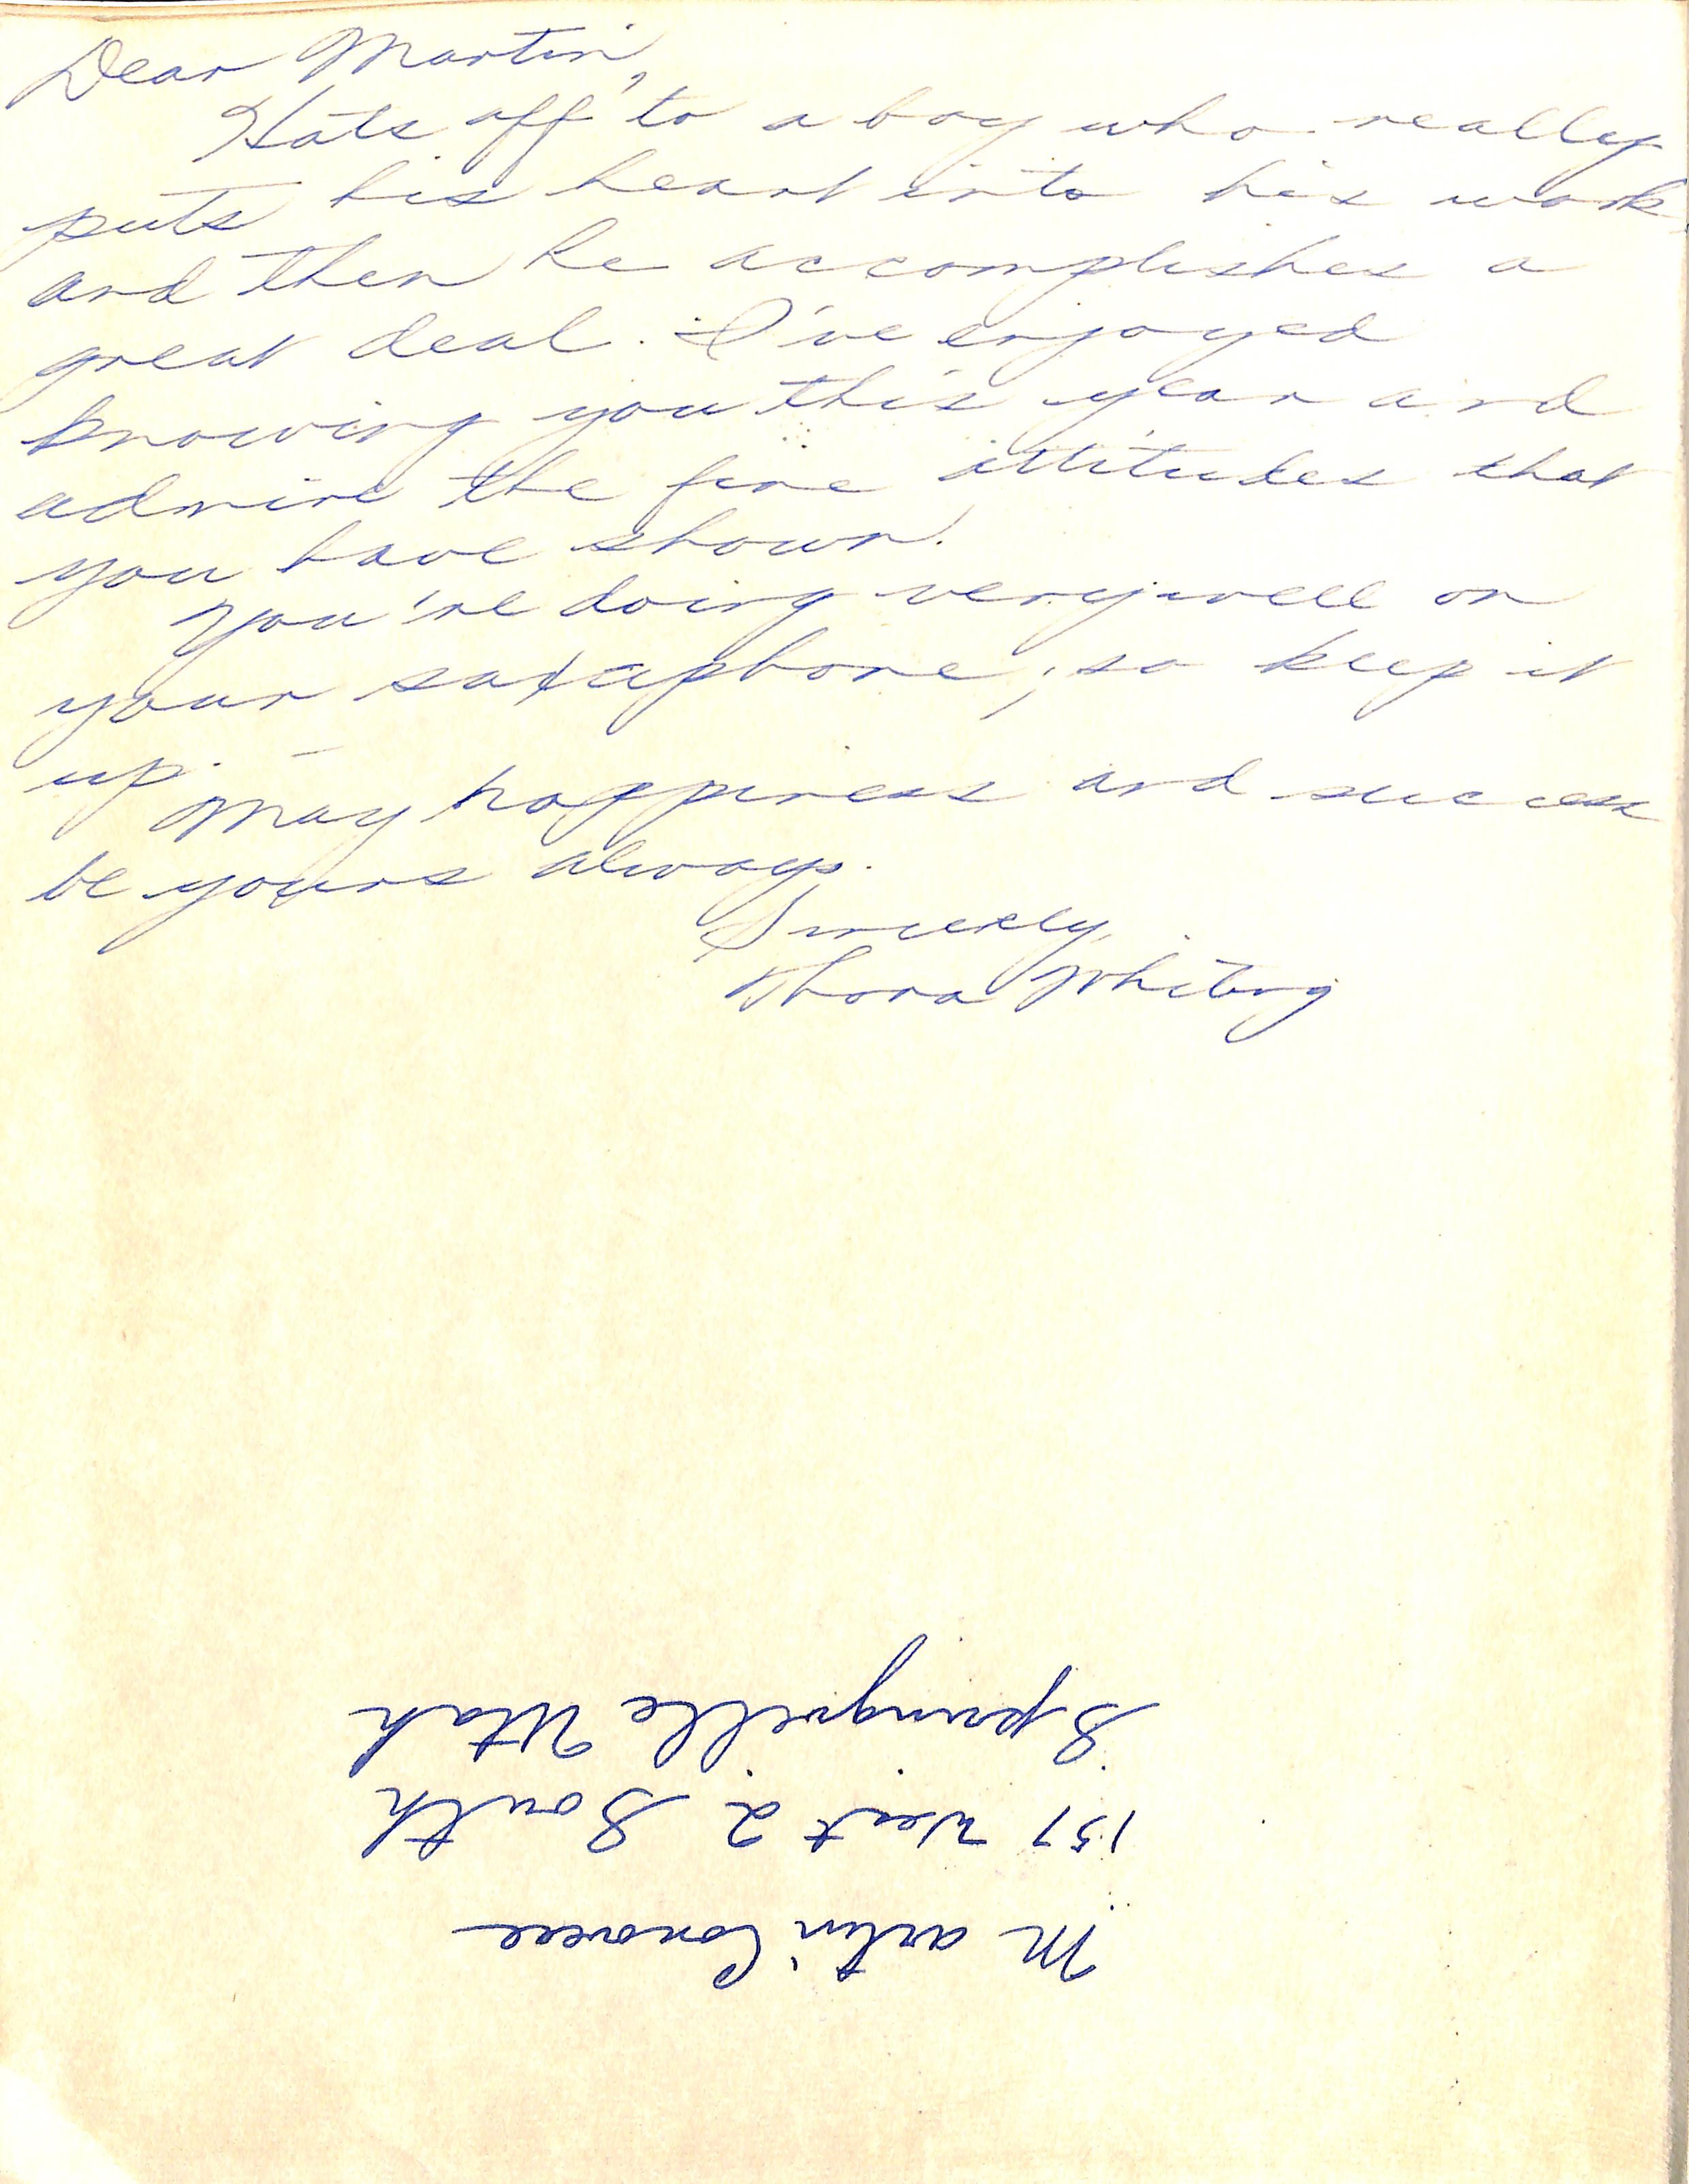 Dear Martin,
Hats off to a boy who really
puts his heart into his work
and then he accomplishes a
great deal. I've enjoyed
knowing you this year and
admire the fine attitudes that
you have shown.
You're doing very well on
your saxaphone, so keep it
up.
May happiness and success
be yours always.
Sincerely,
Thora Whiting
Martin Conover
157 West 2 South
Springville Utah